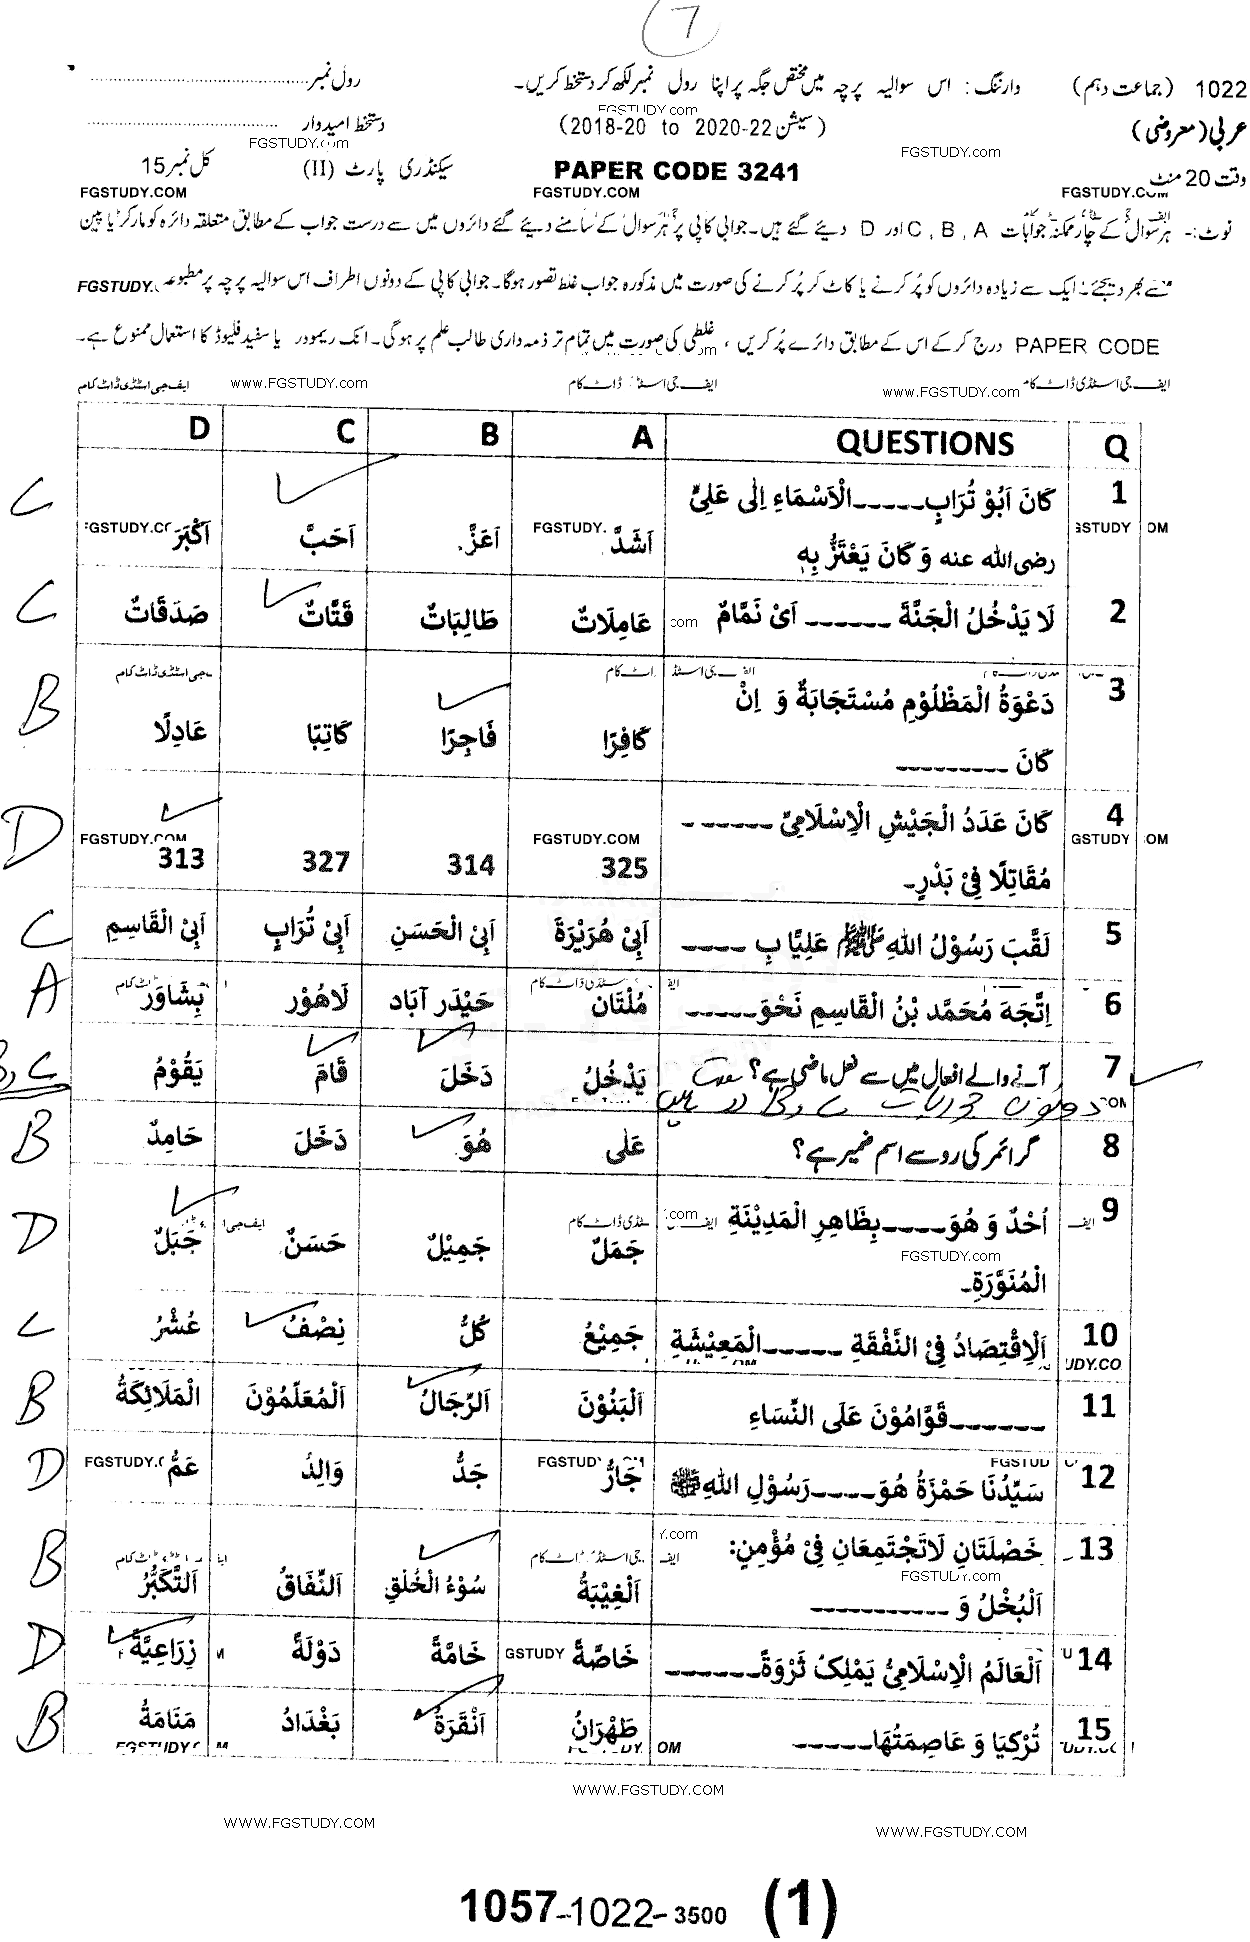 7
1022 (جماعت دہم) وارننگ: اس سوالیہ پرچہ میں مختص جگہ پر اپنا رول نمبر لکھ کر دستخط کریں۔ رول نمبر
FGSTUDY.com
عربی (معروضی) (سیشن 2018-20 to 2020-22) دستخط امیدوار
FGSTUDY.com FGSTUDY.com
وقت 20 منٹ PAPER CODE 3241 سیکنڈری پارٹ (II) کل نمبر 15
FGSTUDY.COM FGSTUDY.COM FGSTUDY.COM
نوٹ:- ہر سوال کے چار ممکنہ جوابات A ، B ، C اور D دیئے گئے ہیں۔ جوابی کاپی پر ہر سوال کے سامنے دیئے گئے دائروں میں سے درست جواب کے مطابق متعلقہ دائرہ کو مارکر یا پین
سے بھر دیجئے۔ ایک سے زیادہ دائروں کو پُر کرنے یا کاٹ کر پُر کرنے کی صورت میں مذکورہ جواب غلط تصور ہوگا۔ جوابی کاپی کے دونوں اطراف اس سوالیہ پرچہ پر مطبوعہ FGSTUDY.
PAPER CODE درج کر کے اس کے مطابق دائرے پُر کریں ، غلطی کی صورت میں تمام تر ذمہ داری طالب علم پر ہوگی۔ انک ریمودر یا سفید فلیوڈ کا استعمال ممنوع ہے۔
ایف جی اسٹڈی ڈاٹ کام www.FGSTUDY.com ایف جی اسٹڈی ڈاٹ کام www.FGSTUDY.com ایف جی اسٹڈی ڈاٹ کام
Q QUESTIONS A B C D
1 كَانَ اَبُوْ تُرَابٍ______الْاَسْمَاءِ اِلٰى عَلِيٍّ
رضی اللہ عنہ وَ كَانَ يَعْتَزُّ بِهٖ اَشَدَّ اَعَزَّ اَحَبَّ اَكْبَرَ C
2 لَا يَدْخُلُ الْجَنَّةَ ______ اَىْ نَمَّامٌ عَامِلَاتٌ طَالِبَاتٌ قَتَّاتٌ صَدَقَاتٌ C
3 دَعْوَةُ الْمَظْلُوْمِ مُسْتَجَابَةٌ وَ اِنْ
كَانَ _________ كَافِرًا فَاجِرًا كَاتِبًا عَادِلًا B
4 كَانَ عَدَدُ الْجَيْشِ الْاِسْلَامِيِّ ______
مُقَاتِلًا فِيْ بَدْرٍ۔ 325 314 327 313 D
5 لَقَّبَ رَسُوْلُ اللهِ ﷺ عَلِيًّا بِ ____ اَبِيْ هُرَيْرَةَ اَبِيْ الْحَسَنِ اَبِيْ تُرَابٍ اَبِيْ الْقَاسِمِ C
6 اِتَّجَهَ مُحَمَّد بْنُ الْقَاسِمِ نَحْوَ_____ مُلْتَان حَيْدَر آبَاد لَاهُوْر بِشَاوَر A
7 آنے والے افعال میں سے فعل ماضی ہے؟ يَدْخُلُ دَخَلَ قَامَ يَقُوْمُ
8 گرائمر کی رو سے اسم ضمیر ہے؟ عَلٰى هُوَ دَخَلَ حَامِدٌ B
9 اُحُدٌ وَ هُوَ____بِظَاهِرِ الْمَدِيْنَةِ
الْمُنَوَّرَةِ۔ جَمَلٌ جَمِيْلٌ حَسَنٌ جَبَلٌ D
10 اَلْاِقْتِصَادُ فِيْ النَّفَقَةِ ______الْمَعِيْشَةِ جَمِيْعُ كُلُّ نِصْفُ عُشْرُ C
11 ______قَوَّامُوْنَ عَلَى النِّسَاءِ اَلْبَنُوْنَ اَلرِّجَالُ اَلْمُعَلِّمُوْنَ الْمَلَائِكَةُ B
12 سَيِّدُنَا حَمْزَةُ هُوَ____رَسُوْلِ اللهِ ﷺ جَارُّ جَدُّ وَالِدُ عَمُّ D
13 خَصْلَتَانِ لَاتَجْتَمِعَانِ فِيْ مُؤْمِنٍ:
اَلْبُخْلُ وَ _________ اَلْغِيْبَةُ سُوْءُ الْخُلُقِ اَلنِّفَاقُ اَلتَّكَبُّرُ B
14 اَلْعَالَمُ الْاِسْلَامِيُّ يَمْلِكُ ثَرْوَةً______ خَاصَّةً خَامَّةً دَوْلَةً زِرَاعِيَّةً D
15 تُرْكِيَا وَ عَاصِمَتُهَا_____ طَهْرَانُ اَنْقَرَةُ بَغْدَادُ مَنَامَةُ B
WWW.FGSTUDY.COM
WWW.FGSTUDY.COM WWW.FGSTUDY.COM
1057-1022-3500 (1)